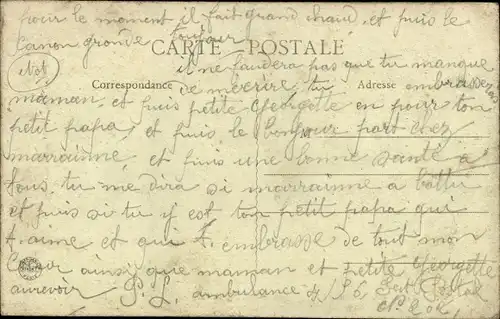 pour le moment il fait grand chaud, et puis le
Canon gronde toujour
CARTE POSTALE
il ne faudera pas que tu manque
Correspondance de mecrire, tu Adresse ambrassera
maman, et puis petite Georgette en pour ton
petit papa, et puis le bonjour part chez
marrainne, et puis une bonne santé a
tous, tu me dira si marrainne a battu
et puis si tu y est ton petit papa qui
t'aime et qui t'embrasse de tout mon
Cœur ainsi que maman et petite Georgette
aurevoir P. L. ambulance 4/56,